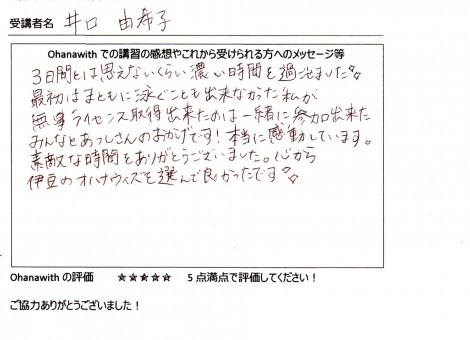 受講者名 井口 由希子
Ohanawith での講習の感想やこれから受けられる方へのメッセージ等
3日間とは思えないくらい濃い時間を過ごせました
最初はまともに泳ぐことも出来なかった私が
無事ライセンス取得出来たのは一緒に参加出来た
みんなとあっしさんのおかげです!本当に感動しています。
素敵な時間をありがとうございました。心から
伊豆のオハナウィズを選んで良かったです
Ohanawith の評価 ★★★★★ 5 点満点で評価してください！
ご協力ありがとうございました！